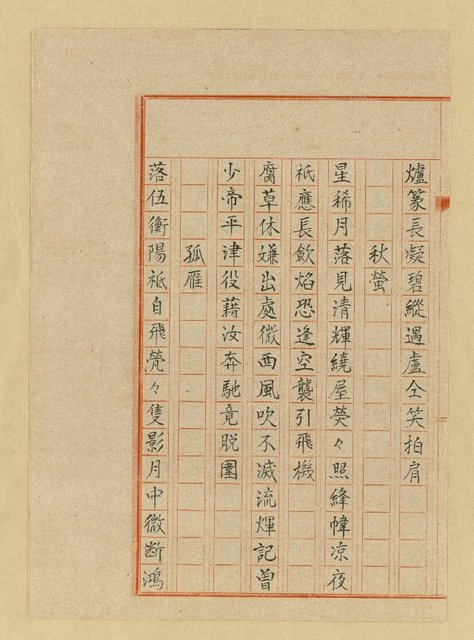 爐篆長凝碧縱過盧仝笑拍肩
秋螢
星稀月落見清輝繞屋熒々照絳幃凉夜
祇應長歛焰恐逢空襲引飛機
腐草休嫌出處微西風吹不滅流煇記曾
少帝平津役藉汝奔馳竟脱圍
孤雁
落伍衡陽祗自飛煢々隻影月中微断鴻